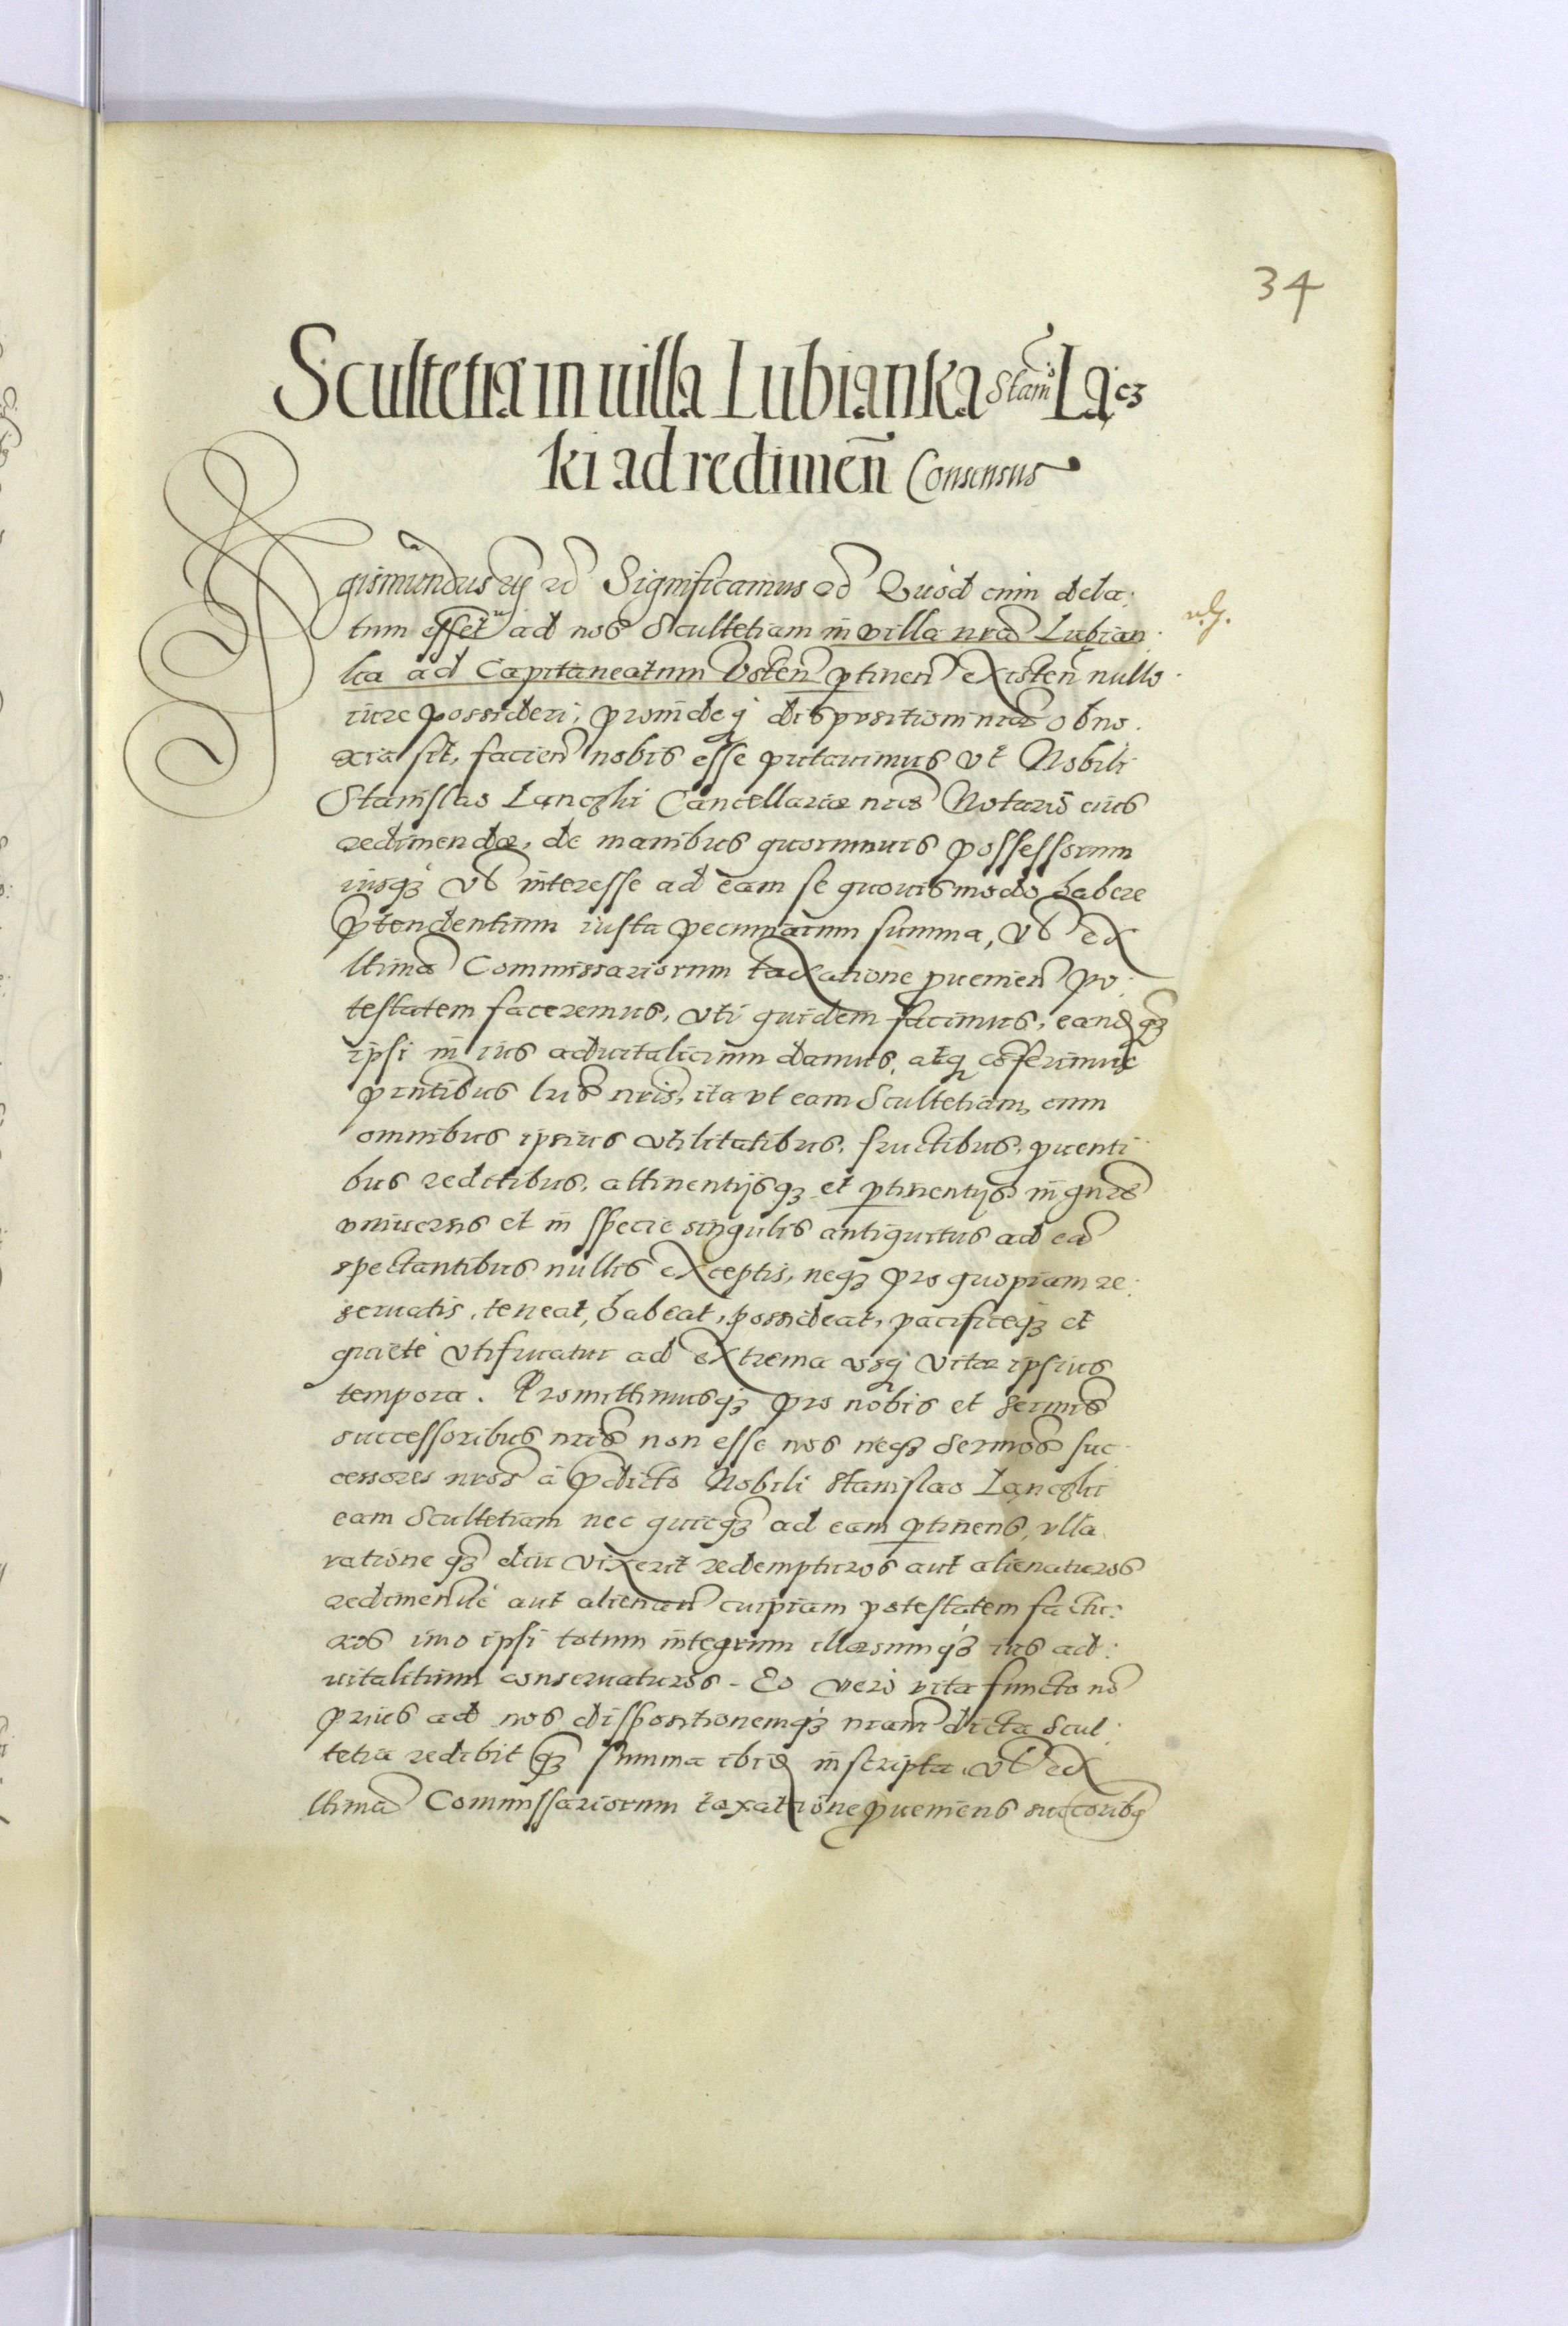 34
Scultetia in uilla Lubianka Stanĩ Lącz
ki ad redimeñ Consensus
Sigismundus etc Significamus Quod cum dela:
tum esset ad nos Scultetiam in villa nrã Lubian:
ka ad Capitaneatum Osteñ ptineñ existeñ nullo
iure possideri, proindeq dispositioni nrae obno:
xia sit, facieñ nobis esse putauimus vt Nobili
Stanislao Lanczki Cancellariae nrae Notario eius
redimendae, de manibus quorumuis possessorum
iusq vel interesse ad eam se quouismodo habere
ptendentium iusta pecuniarum summa, vel ex
ltima Commissariorum taxatione prouenieñ po:
testatem faceremus, vti quidem facimus, eandq
ipsi in ius aduitalicium damus, atq conferimus
pntibus lris nris, ita vt eam Scultetiam, cum
omnibus ipsius vtilitatibus, fructibus, prouenti
bus reditibus, attinentijsq et ptinentijs in gnre
vniuersis et in specie singulis antiquitus ad eã
spectantibus nullis exceptis, neq pro quopiam re:
seruatis, teneat, habeat, possideat, pacificeq et
quietè vtifruatur ad extrema vsq vitae ipsius
tempora. Promittimusq pro nobis et sermis
successoribus nris non esse nos neq sermos suc:
cessores nros à pdicto Nobili Stanislao Lanczki
eam Scultetiam nec quicq ad eam ptinens, vlla
ratione q diu vixerit redempturos aut alienaturos
redimendiué aut alienañ cuipiam potestatem factu:
ros imo ipsi totum integrum illaesumq ius ad:
uitalitium conseruaturos. Eo verò vita functo nõ
prius ad nos dispositionemq nram dicta Scul:
tetia redibit q summa ibid inscripta, vel ex
ltima Commissariorum taxatione proueniens succoribq